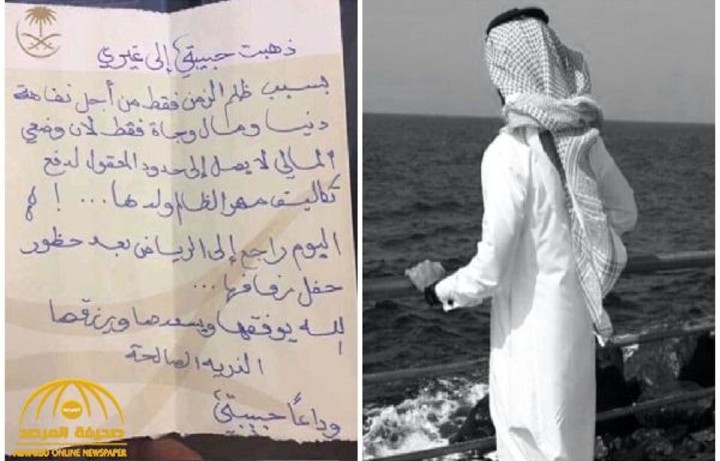 ذهبت حبيبتي إلى غيري
بسبب ظلم الزمن فقط من أجل تفاهة
دنيا ومال وجاة فقط لان وضعي
المالي لا يصل إلى حدود المعقول لدفع
تكاليف مهر الظالم ولدها... !
اليوم راجع إلى الرياض بعد حظور
حفل زفافها...
الله يوفقها ويسعدها ويرزقها
الذريه الصالحة
وداعاً حبيبتي
صحيفة المرصد
ONLINE NEWSPAPER